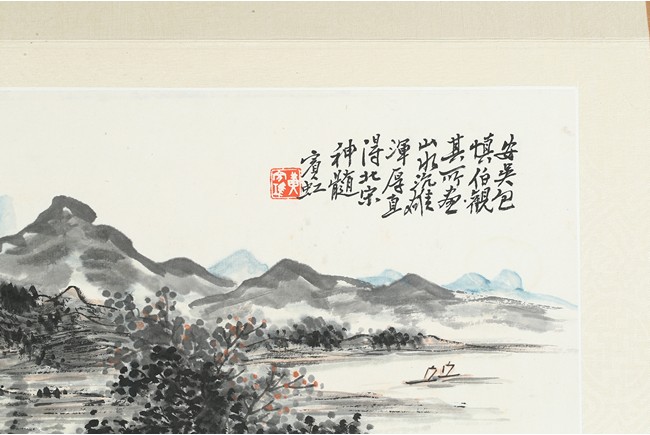 安吳包
慎伯觀
其所畫
山水沉雄
渾厚直
得北宋
神髓
賓虹